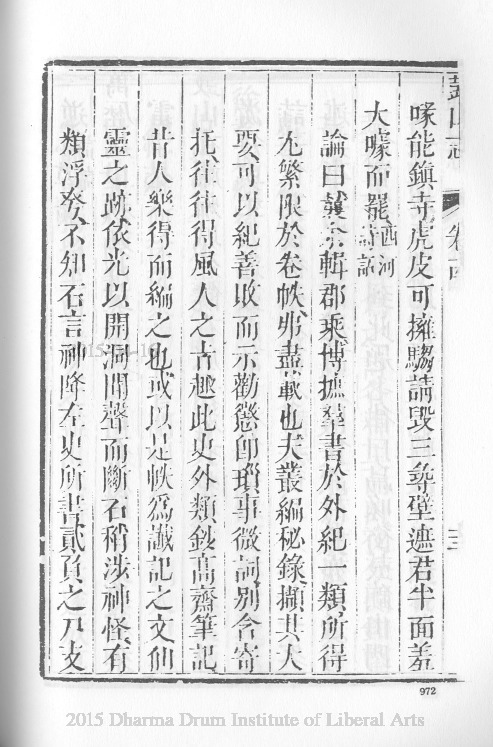 鼓山志 卷古
喙能鎮寺虎皮可擁騶請毀三尊壁遮君半面羞
大噱而罷西河詩話
論曰龔宗輯郡乘博摭羣書於外紀一類所得
尤繁限於卷帙弗盡載也夫叢編秘錄擷其大
要可以紀善敗而示勸懲卽瑣事微詞別含寄
托往往得風人之古趣此史外類鈔高齋筆記
昔人樂得而編之也或以是帙爲讖記之文仙
靈之跡依光以開洞聞聲而斷石稍涉神怪有
類浮夸不知石言神降左史所書貳負之尸支
972
2015 Dharma Drum Institute of Liberal Arts